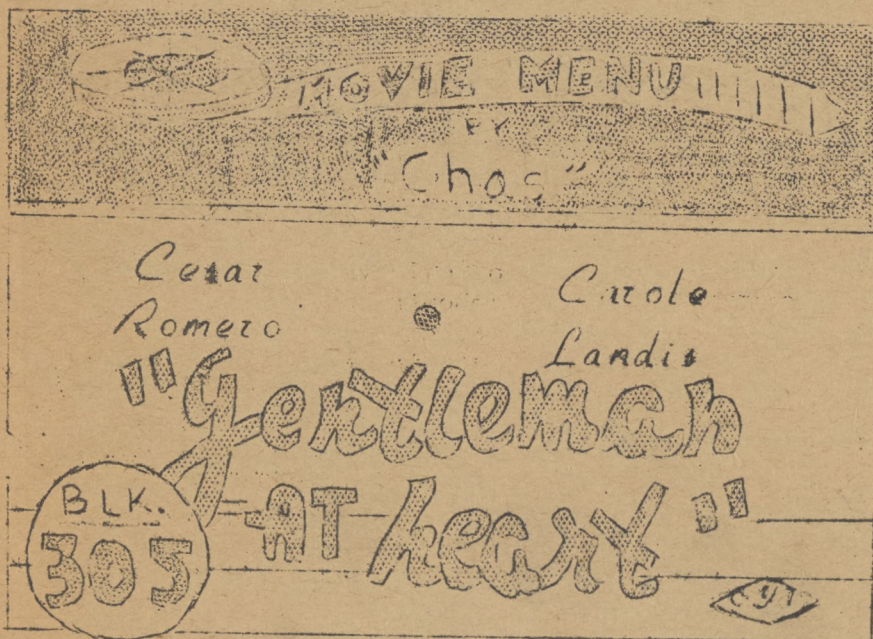 MOVIE MENU
BY
"Chos"
Cesar
Romero
Carole
Landis
"Gentleman
AT heart"
BLK.
305